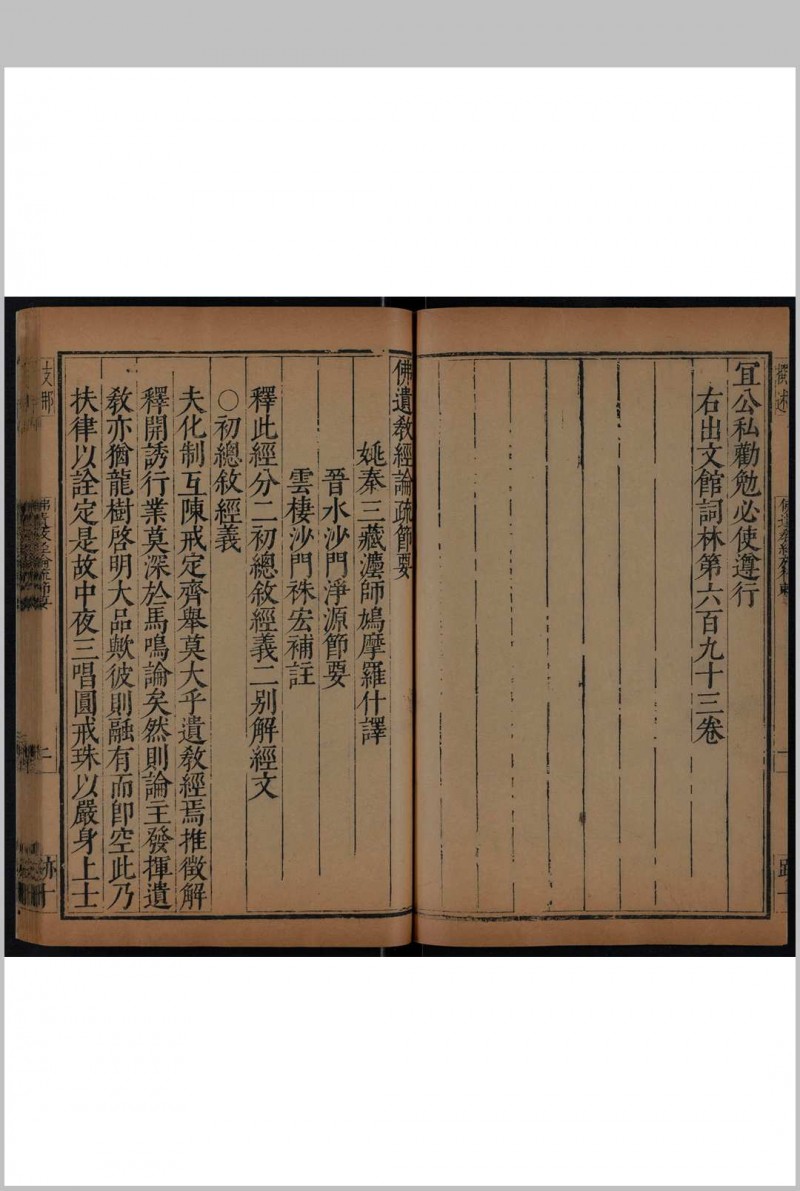 宜公私勸勉必使遵行
右出文館詞林第六百九十三卷
佛遺教經論疏節要
姚秦三藏灋師鳩摩羅什譯
晉水沙門淨源節要
雲棲沙門袾宏補註
釋此經分二初總敘經義二別解經文
○初總敘經義
夫化制互陳戒定齊舉莫大乎遺教經焉推徵解
釋開誘行業莫深於馬鳴論矣然則論主發揮遺
教亦猶龍樹啓明大品歟彼則融有而即空此乃
扶律以詮定是故中夜三唱圓戒珠以嚴身上士
支那
佛遺教經論疏節要
二
跡十